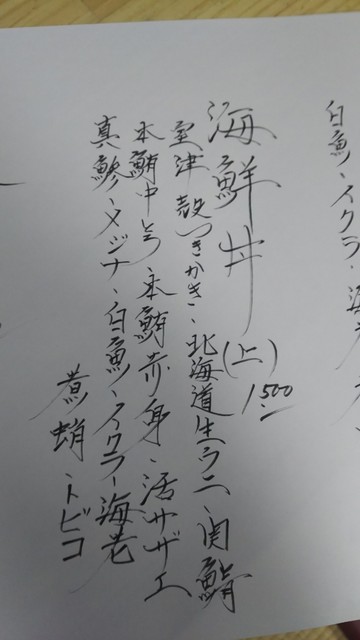 白魚、イクラ、海老
海鮮丼(上)1,500
室津殻つきかき、北海道生ウニ、関鯖
本鮪中とろ、本鮪赤身、活サザエ
真鯵、メジナ、白魚、イクラ、海老
煮蛸、トビコ